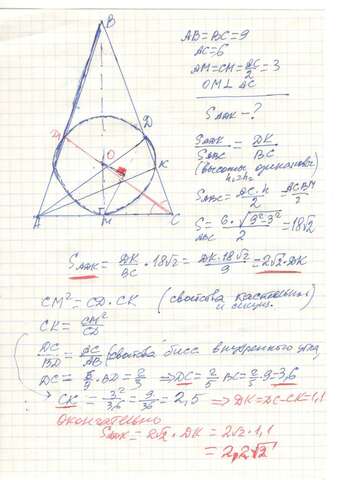 B
AB=BC=9
AC=6
AM=CM=AC/2=3
OM⊥AC
S ADK - ?
S ADK / S ABC = DK / BC
(высоты одинаковы)
S ABC = AC·h/2 = AC·BM/2
S ABC = 6·√(9²-3²)/2 = 18√2
Д
O
K
A
M
C
S ADK = DK/BC · 18√2 = DK·18√2/9 = 2√2·DK
CM² = CD·CK (свойства касательных и секущ.)
CK = CM²/CD
DC/BD = AC/AB (свойства бисс внутреннего угла)
DC = 6/9·BD = 2/3 ⇒ DC = 2/5 BC = 2/5·9 = 3,6
CK = 3²/3,6 = 9/3,6 = 2,5 ⇒ DK=DC-CK=1,1
Окончательно
S ADK = 2√2·DK = 2√2·1,1
= 2,2√2